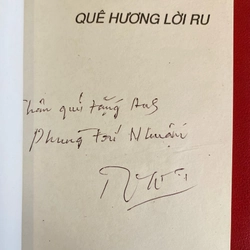 QUÊ HƯƠNG LỜI RU
Thân quí tặng Anh
Phung Trí Nhuận